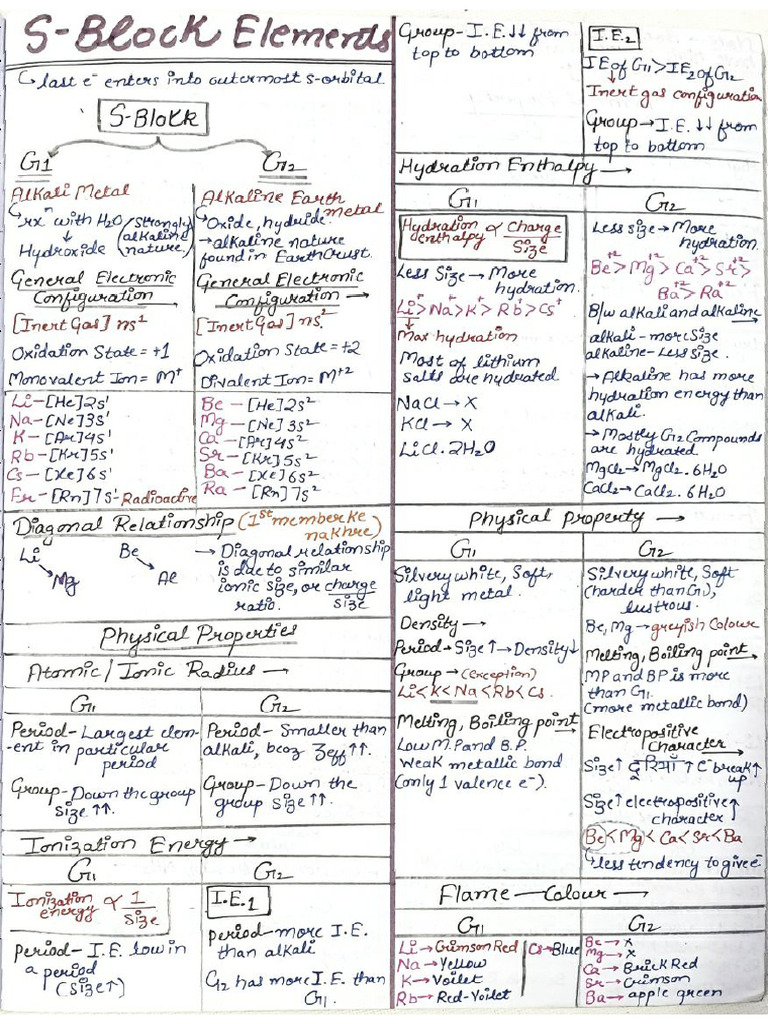 S-Block Elements
↳last e⁻ enters into outermost s-orbital
S-Block
G1
G2
Alkali Metal
↳rxⁿ with H2O (strongly alkaline nature)
↓
Hydroxide
Alkaline Earth metal
↳Oxide, hydride.
→alkaline nature
found in Earth Crust.
General Electronic
Configuration →
[Inert Gas] ns¹
Oxidation State = +1
Monovalent Ion = M⁺
General Electronic
Configuration →
[Inert Gas] ns²
Oxidation State = +2
Divalent Ion = M⁺²
Li-[He]2s¹
Na-[Ne]3s¹
K-[Ar]4s¹
Rb-[Kr]5s¹
Cs-[Xe]6s¹
Fr-[Rn]7s¹-Radioactive
Be-[He]2s²
Mg-[Ne]3s²
Ca-[Ar]4s²
Sr-[Kr]5s²
Ba-[Xe]6s²
Ra-[Rn]7s²
Diagonal Relationship (1st member ke
nakhre)
Li
Mg
Be
Al
→ Diagonal relationship
is due to similar
ionic size, or charge/size
ratio.
Physical Properties
Atomic/Ionic Radius →
G1
Period-Largest elem-
ent in particular
period
Group-Down the group
size ↑↑.
G2
Period-Smaller than
alkali, becoz Zeff↑↑.
Group-Down the
group size↑↑.
Ionization Energy →
G1
Ionization energy ∝ 1/Size
Period-I.E. low in
a period
(Size↑)
G2
I.E.1
Period-more I.E.
than alkali
G2 has more I.E. than
G1.
Group-I.E.↓↓ from
top to bottom
I.E.2
IE of G1>IE2 of G2
↓
Inert gas configuration
Group→I.E.↓↓ from
top to bottom
Hydration Enthalpy →
G1
Hydration enthalpy ∝ Charge/Size
Less Size→More
hydration.
Li⁺>Na⁺>K⁺>Rb⁺>Cs⁺
↓
Max hydration
Most of lithium
salts are hydrated
NaCl→X
KCl→X
LiCl.2H2O
G2
Less size→More
hydration.
Be⁺²>Mg⁺²>Ca⁺²>Sr⁺²>
Ba⁺²>Ra⁺²
B/w alkali and alkaline
alkali-more Size
alkaline-Less Size.
→Alkaline has more
hydration energy than
alkali.
→Mostly G2 Compounds
are hydrated.
MgCl2→MgCl2.6H2O
CaCl2→CaCl2.6H2O
Physical Property →
G1
Silvery white, Soft,
light metal.
Density→
Period→Size↑→Density↓
Group→(exception)
Li<K<Na<Rb<Cs.
Melting, Boiling point→
Low M.P and B.P.
Weak metallic bond
(only 1 valence e⁻).
G2
Silvery white, Soft
(harder than G1),
lustrous.
Be, Mg→greyish Colour
Melting, Boiling point→
MP and BP is more
than G1.
(more metallic bond)
Electropositive
character→
Size↑ दूरियाँ↑ e⁻ break↑
up
Size↑ electropositive↑
character
Be<Mg<Ca<Sr<Ba
↳less tendency to give e⁻
Flame—Colour→
G1
Li→Crimson Red
Na→Yellow
K→Voilet
Rb→Red-Voilet
Cs→Blue
G2
Be→X
Mg→X
Ca→Brick Red
Sr→Crimson
Ba→apple green